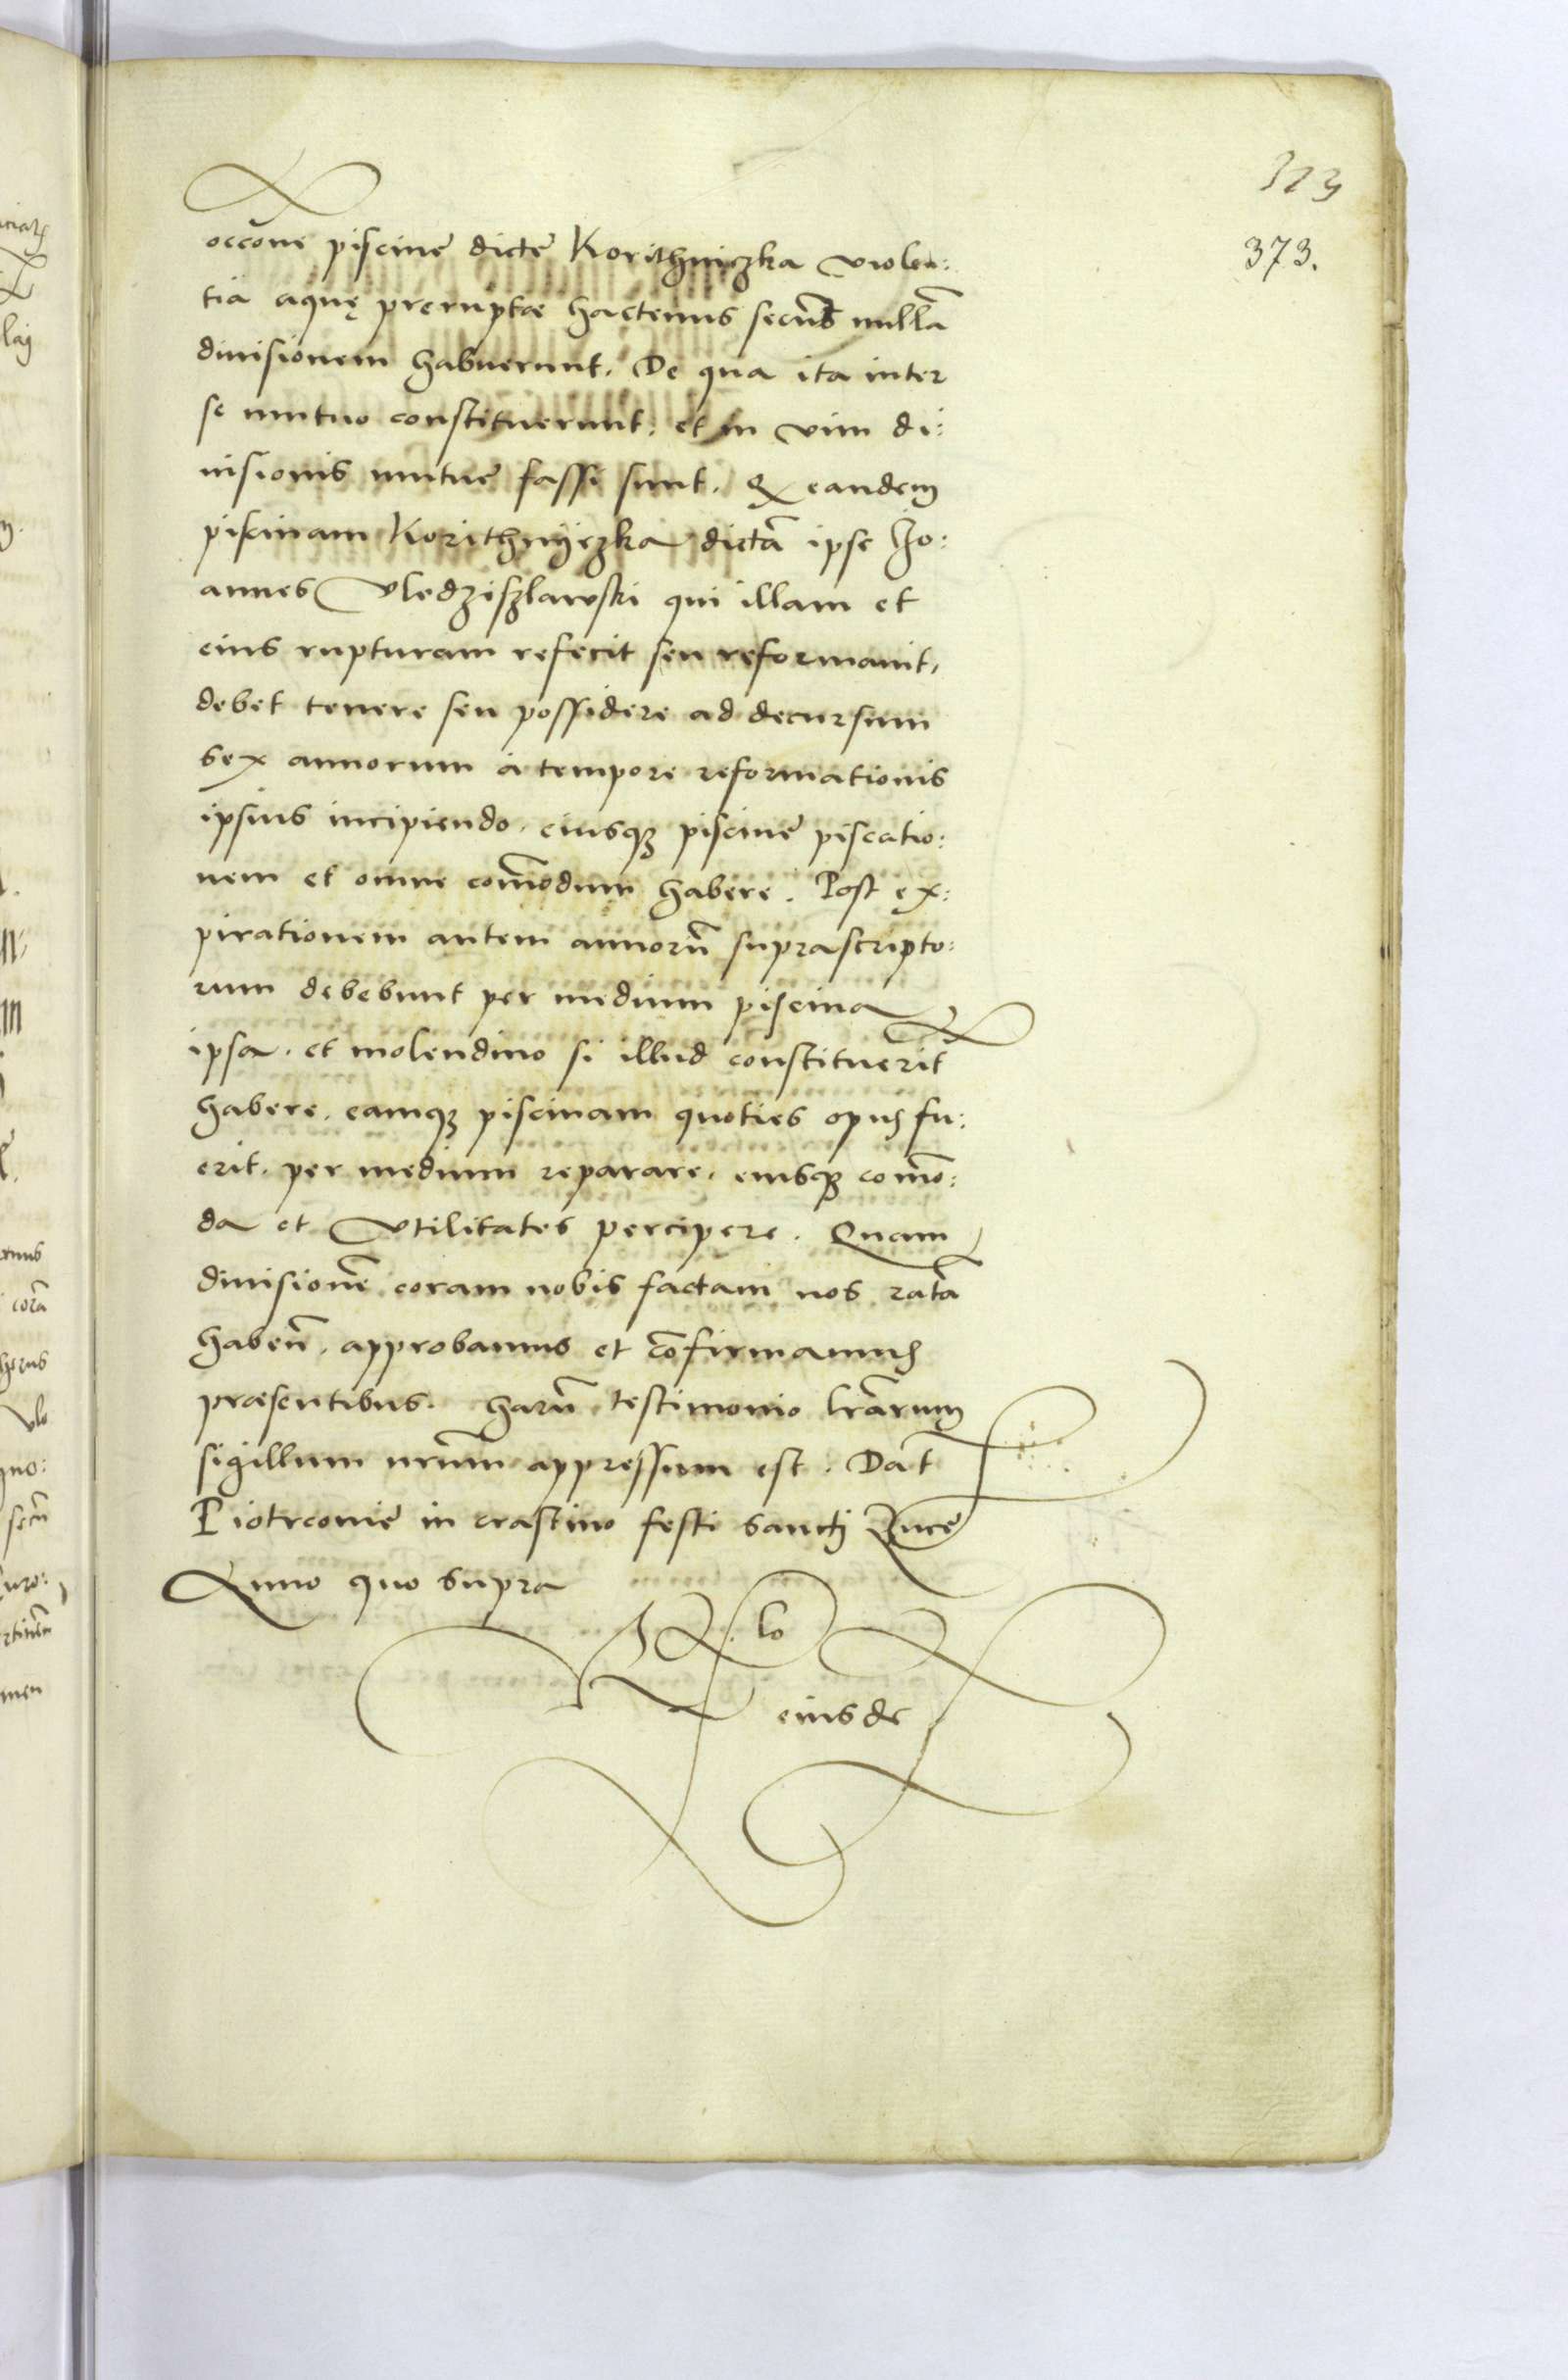 323
373.
occōne piscine dicte Korithniczka violen:
tia aquę preruptæ hactenus secūs nullā
divisionem habuerunt. De qua ita inter
se mutuo constituerunt. et in vim di:
visionis mutue fassi sunt. Qx eandem
piscinam Korithnÿczka dictā ipse Jo:
annes Vledziszlawski qui illam et
eius rupturam refecit seu reformavit,
debet tenere seu possidere ad decursum
sex annorum à tempore reformationis
ipsius incipiendo. eiusqз piscine piscatio:
nem et omne com̄odum habere. Post ex:
pirationem autem annorū suprascripto:
rum debebunt per medium piscina
ipsa. et molendino si illud constituerit
habere. eamqз piscinam quoties opus fu:
erit. per medium reparare. eiusqз com̄o:
da et Vtilitates percipere. Quam
divisionē coram nobis factam nos ratā
habeñ. approbamus et cōfirmamus
præsentibus. harū testimonio lr̄arum
sigillum nr̄um appressum est. Dat
Piotrcovie in crastino festi sancti Luce
Anno quo supra
eiusde